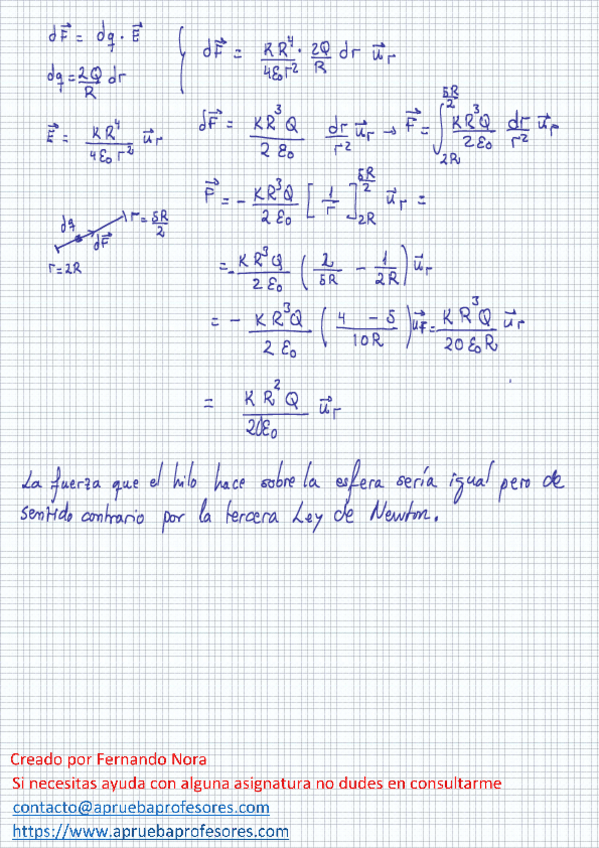 dF⃗ = dq · E⃗
dq = 2Q/R dr
E⃗ = KR⁴/4ε₀r² u⃗r
dF⃗ = KR⁴/4ε₀r² · 2Q/R dr u⃗r
dF⃗ = KR³Q/2ε₀ dr/r² u⃗r → F⃗ = ∫_{2R}^{5R/2} KR³Q/2ε₀ dr/r² u⃗r
F⃗ = - KR³Q/2ε₀ [1/r]_{2R}^{5R/2} u⃗r =
dq
dF⃗
r = 5R/2
r=2R
= - KR³Q/2ε₀ (2/5R - 1/2R) u⃗r
= - KR³Q/2ε₀ (4 - 5/10R) u⃗r = KR³Q/20ε₀R u⃗r
= KR²Q/20ε₀ u⃗r
La fuerza que el hilo hace sobre la esfera sería igual pero de
sentido contrario por la tercera Ley de Newton.
Creado por Fernando Nora
Si necesitas ayuda con alguna asignatura no dudes en consultarme
contacto@apruebaprofesores.com
https://www.apruebaprofesores.com